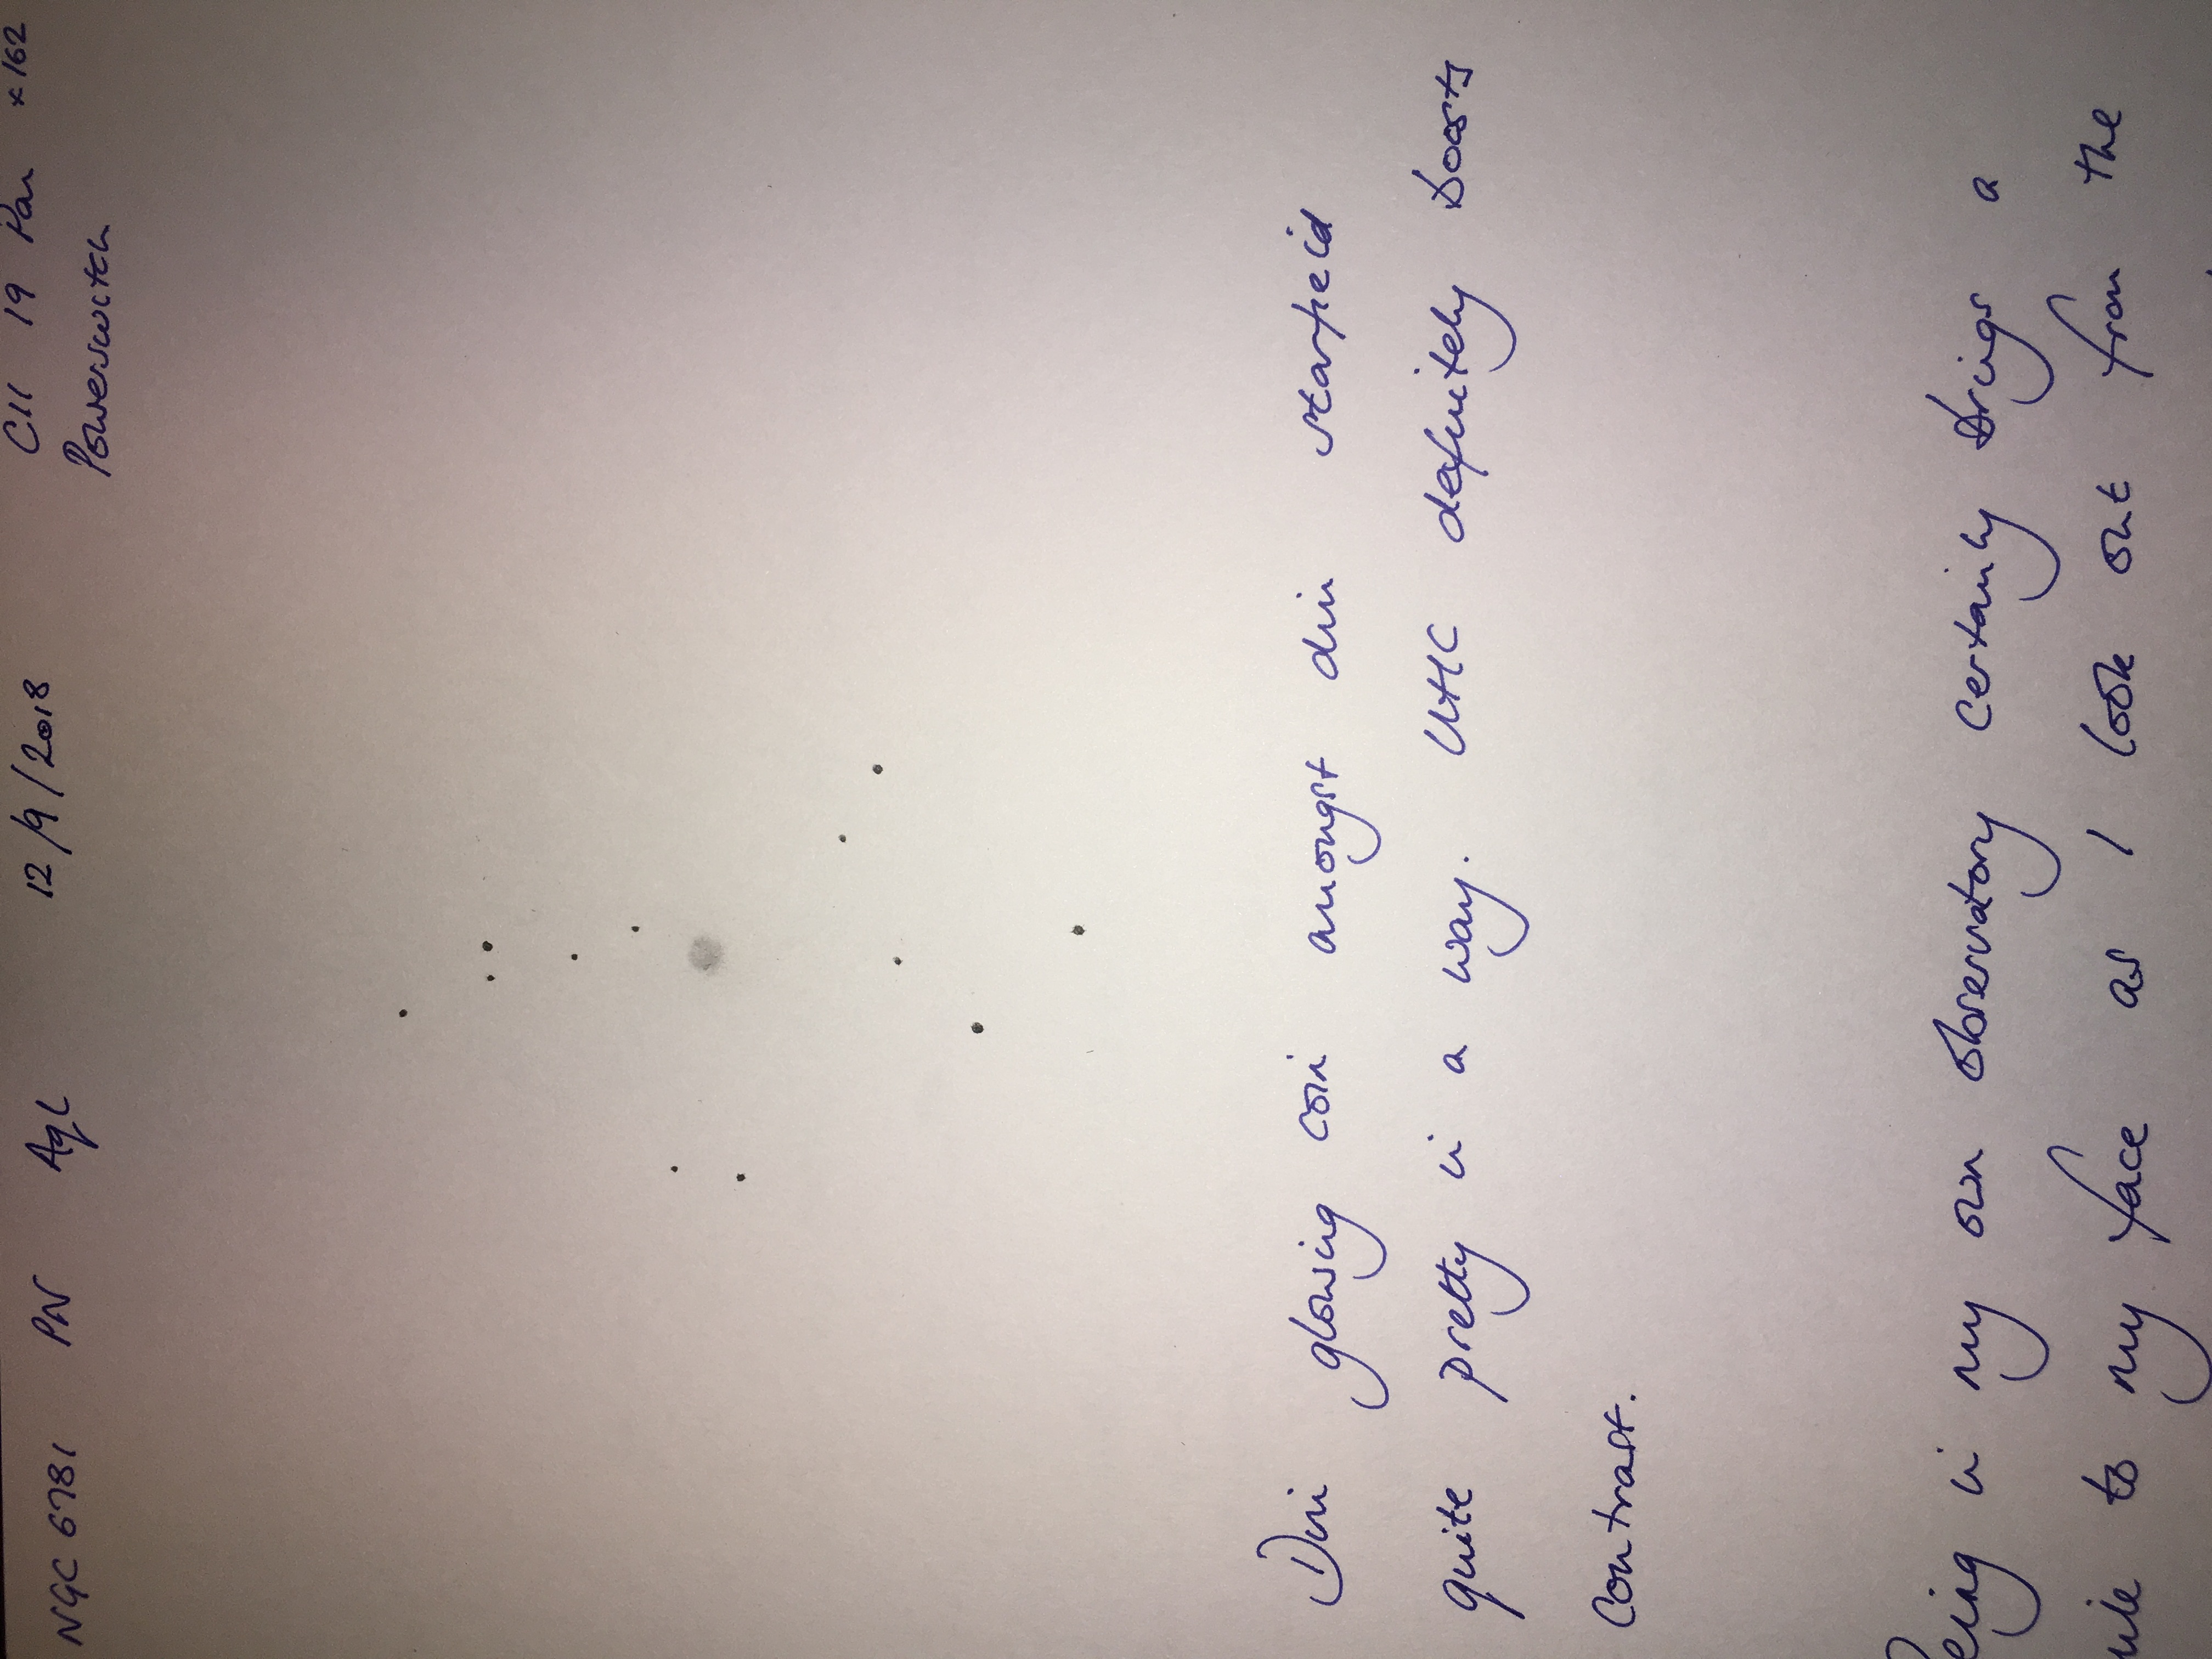 NGC 6781 PN Aql 12/9/2018 C11 19 Pan x162
Powerswitch
Dim glowing coin amongst dim starfield
quite pretty in a way. UHC definitely boosts
contrast.
Being in my own observatory certainly brings a
smile to my face as I look out from the